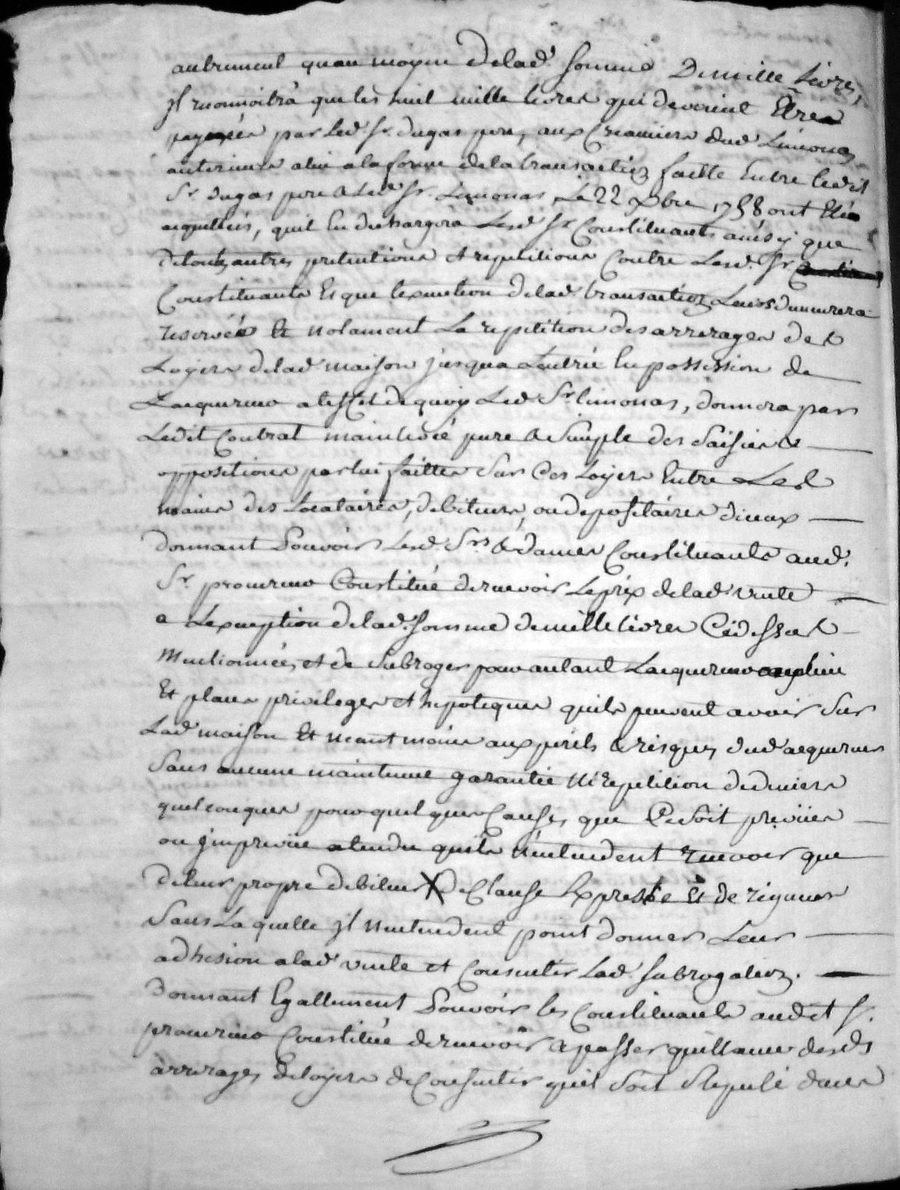 autrement quau moyen de lad. somme De mille Livres,
jl reconnoitra que les huit mille livres qui devoient Etre
payées par Led. Sr. dugas pere, aux Creanciers dud. Limonas
anterieurs a lui a la forme de la transaction faitte Entre ledit
Sr. dugas pere & Led. Sr. Limonas, Le 22 xbre 1758 ont Eté
acquittées, quil en dechargera Lesd. Srs Constituants ainsy que
De toutes autres pretentions et repetitions Contre Lesd. Srs
Constituants Et que lexecution de lad. transaction Leurs demeurera
reservée Et notament La repetition des arrerages des
Loyers de lad. maison jusqua Lentrée En possession de
Lacquereur a leffet de quoy Led. Sr. Limonas, donnera par
Ledit Contrat mainlevée pure & simple des Saisies &
oppositions par lui faittes sur Ces Loyers Entre Les
mains des Locataires, debiteurs, ou depositaires diceux
donnant Pouvoir Lesd. Srs & dames Constituants aud.
Sr. procureur Constitué de recevoir Le prix de lad. vente
a Lexception de lad. somme de mille livres Cy dessus
Mentionnée, et de subroger pour autant Lacquereur
Et places privileges et hipoteques quils peuvent avoir sur
Lad. maison Et neant moins aux perils & risques dud. acquereur
Sans aucune maintenue garantie ni repetition de deniers
quelconques pour quelques Causes, que Ce soit preveües
ou jmpreveüe atendu quils nentendent recevoir que
de leur propre debiteur X De Clause Expresse Et de rigueur
Sans Laquelle jls nentendent point donner Leur
adhesion a lad. vente et Consentir Lad. subrogation.
Donnant Egallement Pouvoir les Constituants audit Sr.
procureur Constitué de recevoir & passer quittance desds.
arrerages de loyers de Consentir quil soit stipulé dans